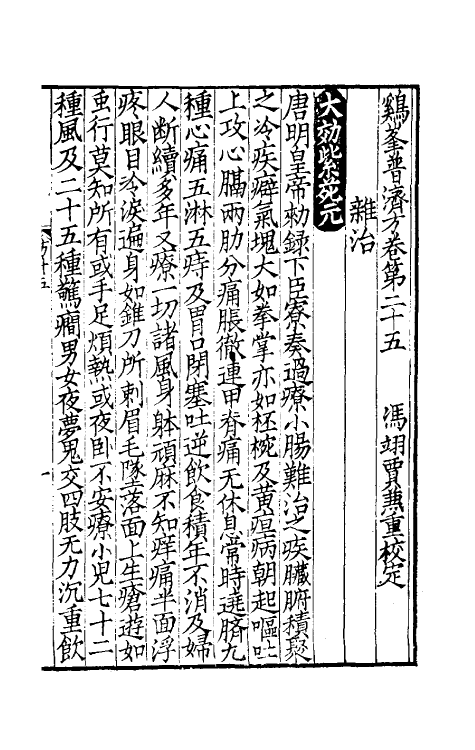 鷄峯普濟方卷第二十五　馮翊賈兼重校定
雜治
大効紫死元
唐明皇帝勑録下臣寮奏過療小腸難治之疾臟腑積聚
之冷疾癖氣塊大如拳掌亦如柸椀及黄疸病朝起嘔吐
上攻心膈兩肋分痛脹徹連甲脊痛无休息常時遶臍九
種心痛五淋五痔及胃口閉塞吐逆飲食積年不消及婦
人断續多年又療一切諸風身躰頑麻不知痒痛半面浮
疼眼目冷淚遍身如錐刀所刺眉毛墜落面上生瘡遊如
虫行莫知所有或手足煩熱或夜卧不安療小兒七十二
種風及二十五種驚癎男女夜夢鬼交四肢无力沉重飲